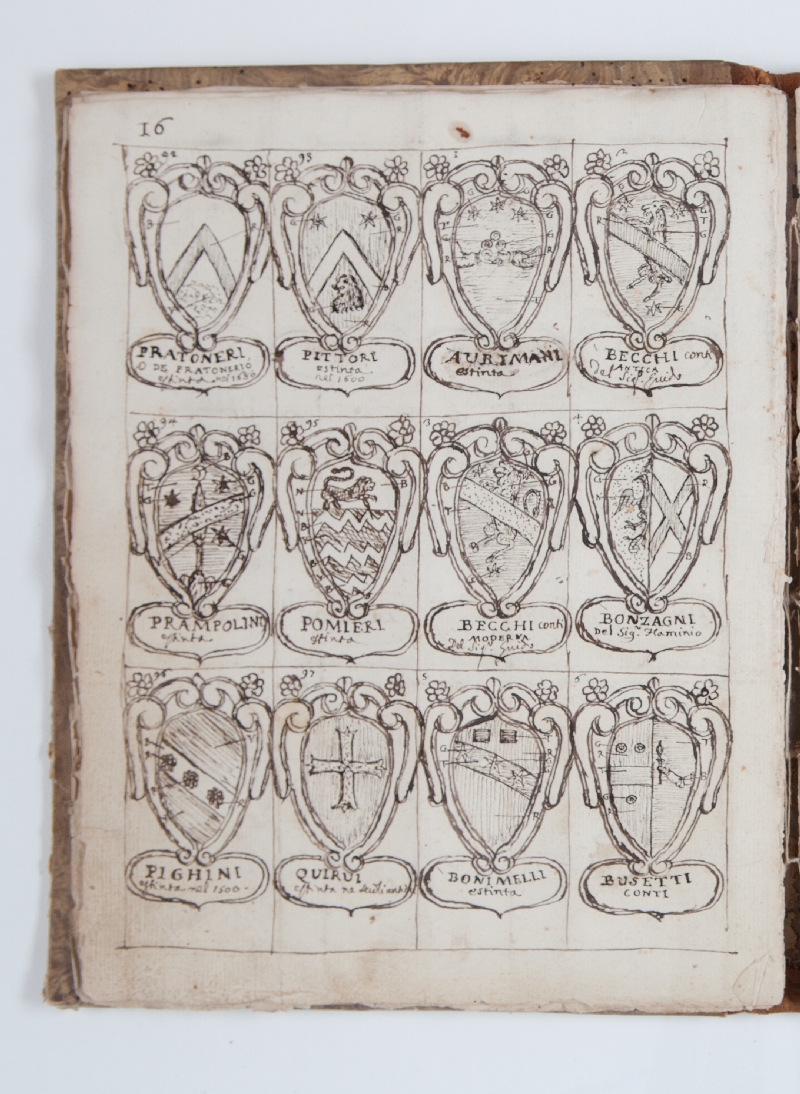 16
92
PRATONERI
O DE PRATONERIO
estinta nel 1630
93
PITTORI
estinta
nel 1600
1
AURIMANI
estinta
2
BECCHI conti
ANTICA
Del Sig. Guido
94
PRAMPOLINI
estinta
95
POMIERI
estinta
3
BECCHI conti
MODERNA
Del Sig. Guido
4
BONZAGNI
Del Sig. Flaminio
96
PIGHINI
estinta nel 1500.
97
QUIRUI
estinta ne
5
BONIMELLI
estinta
6
BUSETTI
CONTI